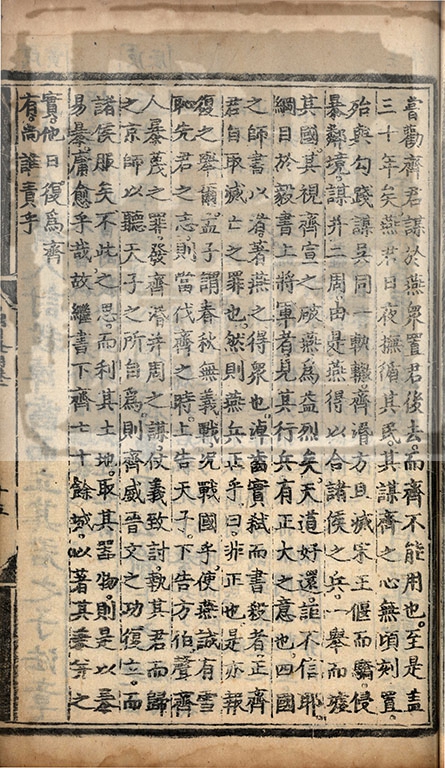 嘗勸齊君謀於燕衆置君後去而齊不能用也至是盖
三十年矣燕君日夜撫循其民其謀齊之心無頃刻置
殆與勾踐謀吳同一軌轍齊湣方且滅宋王偃而驕侵
暴鄰境謀并二周由是燕得以合諸侯之兵一舉而殘
其國其視齊宣之破燕爲益烈矣天道好還詎不信耶
綱目於毅書上將軍者見其行兵有正大之意也四國
之師書以者著燕之得衆也淖齒實弑而書殺者正齊
君自取滅亡之罪也然則燕兵正乎曰非正也是亦報
復之舉爾孟子謂春秋無義戰况戰國乎使燕誠有雪
恥先君之志則當伐齊之時上告天子下告方伯聲齊
人暴蔑之罪發齊湣并周之謀仗義致討執其君而歸
之京師以聽天子之所自爲則齊威晉文之功復立而
諸侯服矣不此之思而利其土地取其器物則是以暴
易暴庸愈乎哉故繼書下齊七十餘城以著其等之
實他日復爲齊
有尚誰責乎